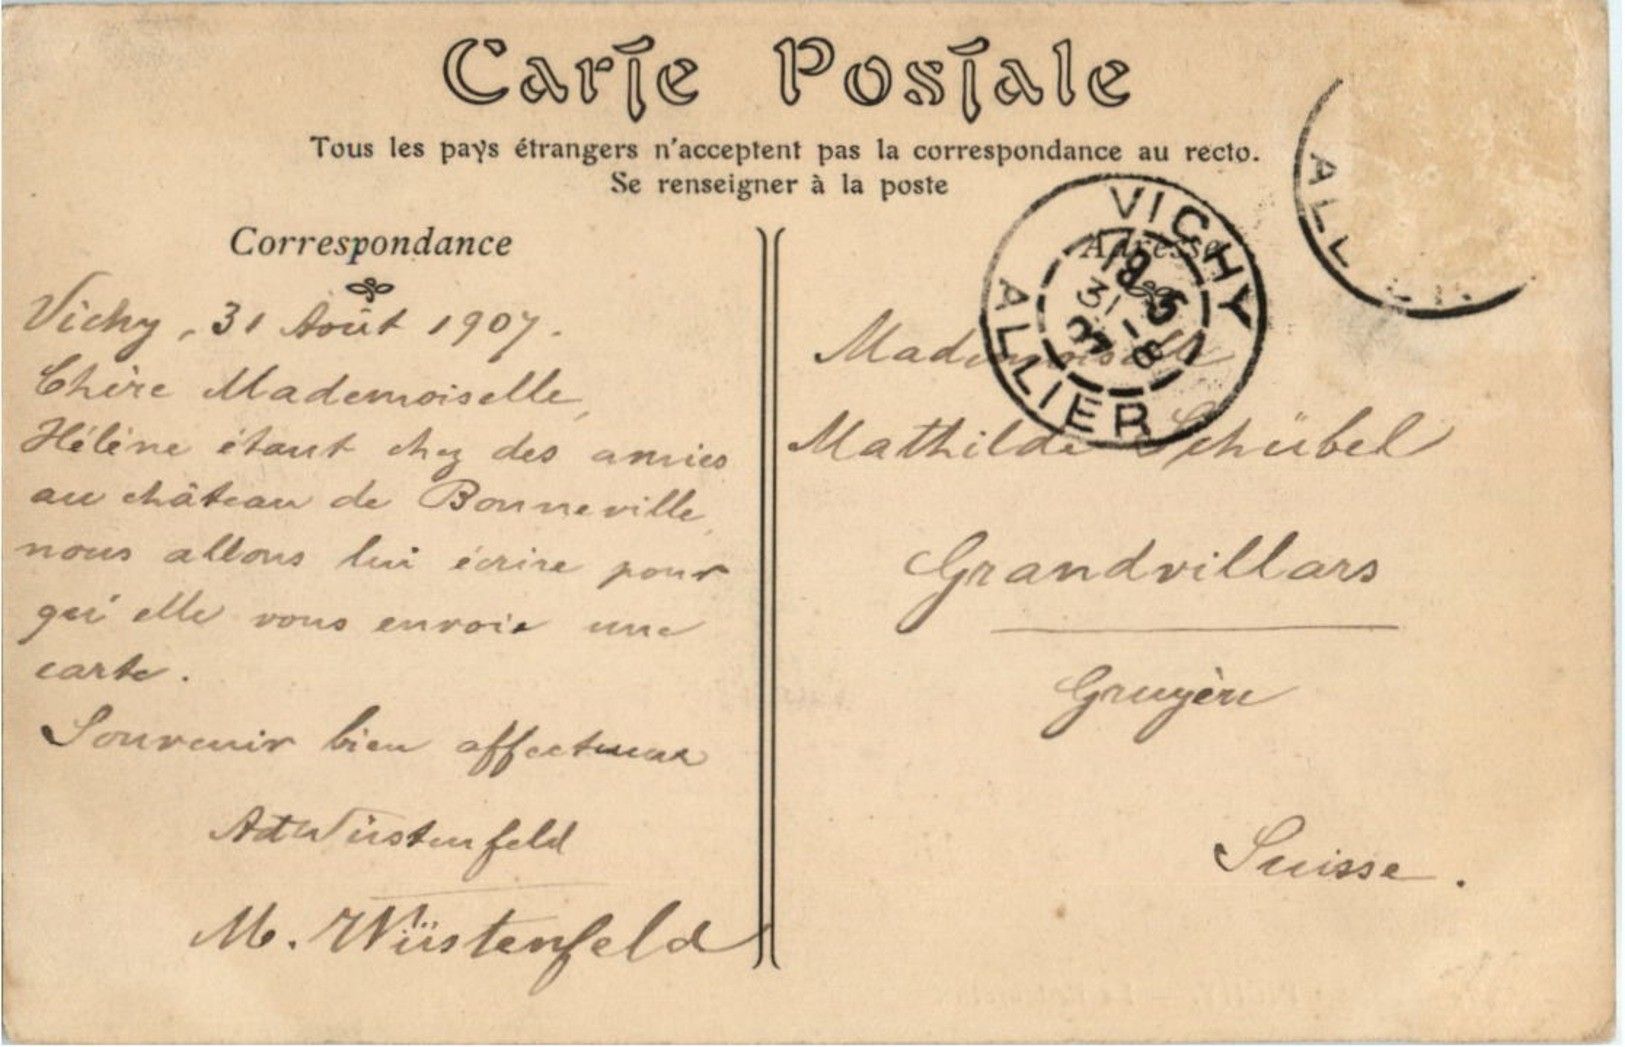 Carte Postale
Tous les pays étrangers n'acceptent pas la correspondance au recto.
Se renseigner à la poste
Correspondance
Vichy, 31 Août 1907.
Chère Mademoiselle,
Hélène étant chez des amies
au château de Bonneville,
nous allons lui écrire pour
qu'elle vous envoie une
carte.
Souvenir bien affectueux
Ad Wüstenfeld
M. Wüstenfeld
Adresse
VICHY
ALLIER
31 - 8
07
Mademoiselle
Mathilde Schübel
Grandvillars
Gruyère
Suisse.